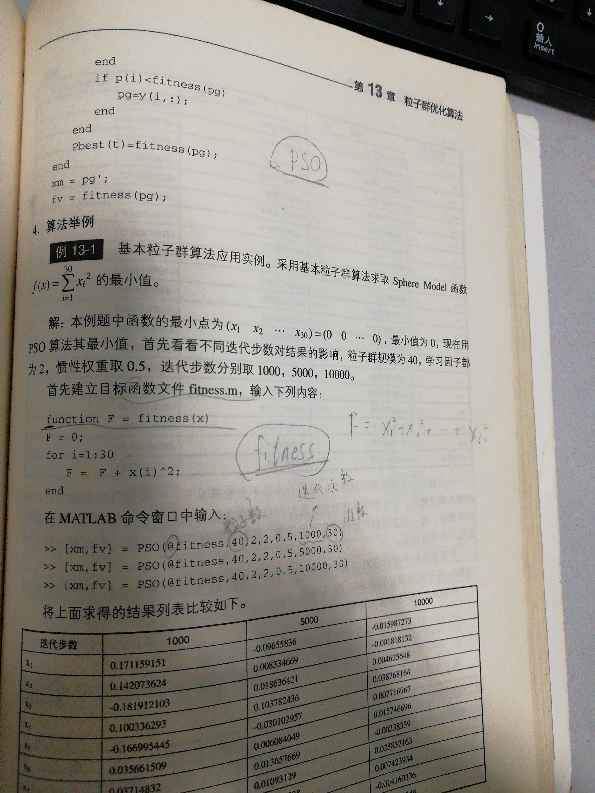 插入
Insert
第 13 章 粒子群优化算法
end
if p(i)<fitness(pg)
pg=y(i,:);
end
end
Pbest(t)=fitness(pg);
end
xm = pg';
fv = fitness(pg);
PSO
4. 算法举例
例 13-1 基本粒子群算法应用实例。采用基本粒子群算法求取 Sphere Model 函数
f(x)=∑_{i=1}^{30} x_i² 的最小值。
解: 本例题中函数的最小点为 (x₁ x₂ ⋯ x₃₀)=(0 0 ⋯ 0), 最小值为 0, 现在用
PSO 算法其最小值, 首先看看不同迭代步数对结果的影响, 粒子群规模为 40, 学习因子都
为 2, 惯性权重取 0.5, 迭代步数分别取 1000, 5000, 10000。
首先建立目标函数文件 fitness.m, 输入下列内容:
function F = fitness(x)
F = 0;
for i=1:30
F = F + x(i)^2;
end
fitness
迭代次数
粒子数
维数
在 MATLAB 命令窗口中输入:
>> [xm,fv] = PSO(@fitness,40,2,2,0.5,1000,30)
>> [xm,fv] = PSO(@fitness,40,2,2,0.5,5000,30)
>> [xm,fv] = PSO(@fitness,40,2,2,0.5,10000,30)
将上面求得的结果列表比较如下。
迭代步数 1000 5000 10000
x₁ 0.171159151 -0.09655836 -0.015987273
x₂ 0.142073624 0.008334669
x₃ -0.181912103 0.018636421
x₄ 0.100336293 0.103782436
x₅ -0.166995445 -0.030102957
x₆ 0.035661509 0.006084049
0.013657669
0.01093129